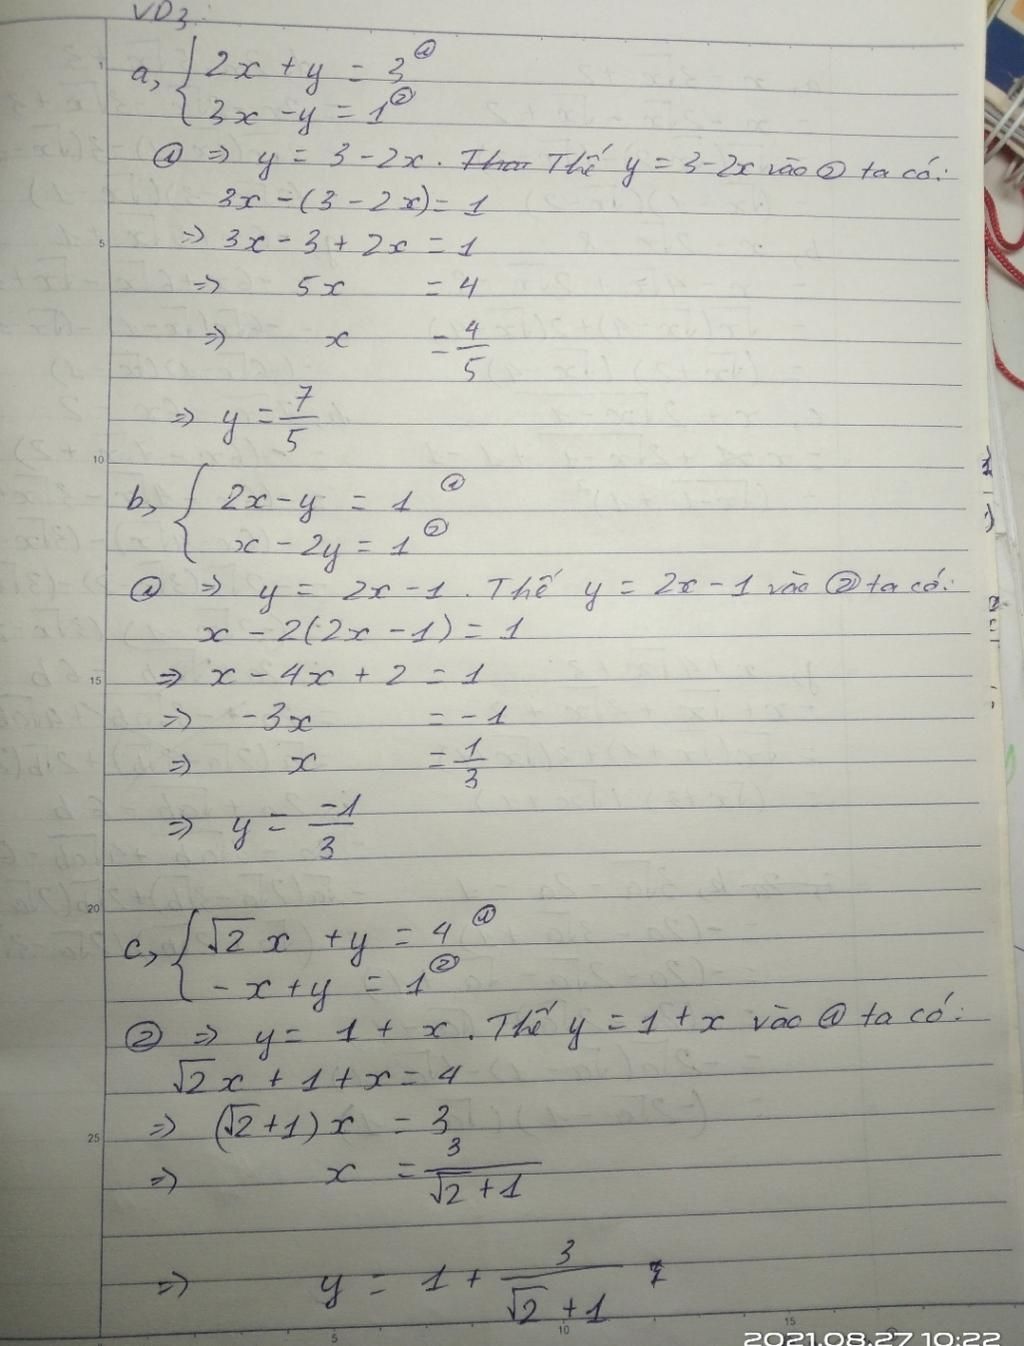 VD3:
a, { 2x + y = 3 ①
3x - y = 1 ②
① => y = 3 - 2x. Thế y = 3 - 2x vào ② ta có:
3x - (3 - 2x) = 1
=> 3x - 3 + 2x = 1
=> 5x = 4
=> x = 4/5
=> y = 7/5
b, { 2x - y = 1 ①
x - 2y = 1 ②
① => y = 2x - 1. Thế y = 2x - 1 vào ② ta có:
x - 2(2x - 1) = 1
=> x - 4x + 2 = 1
=> -3x = -1
=> x = 1/3
=> y = -1/3
c, { √2 x + y = 4 ①
-x + y = 1 ②
② => y = 1 + x. Thế y = 1 + x vào ① ta có:
√2 x + 1 + x = 4
=> (√2 + 1) x = 3
=> x = 3/(√2 + 1)
=> y = 1 + 3/(√2 + 1)
2021.08.27 10:22